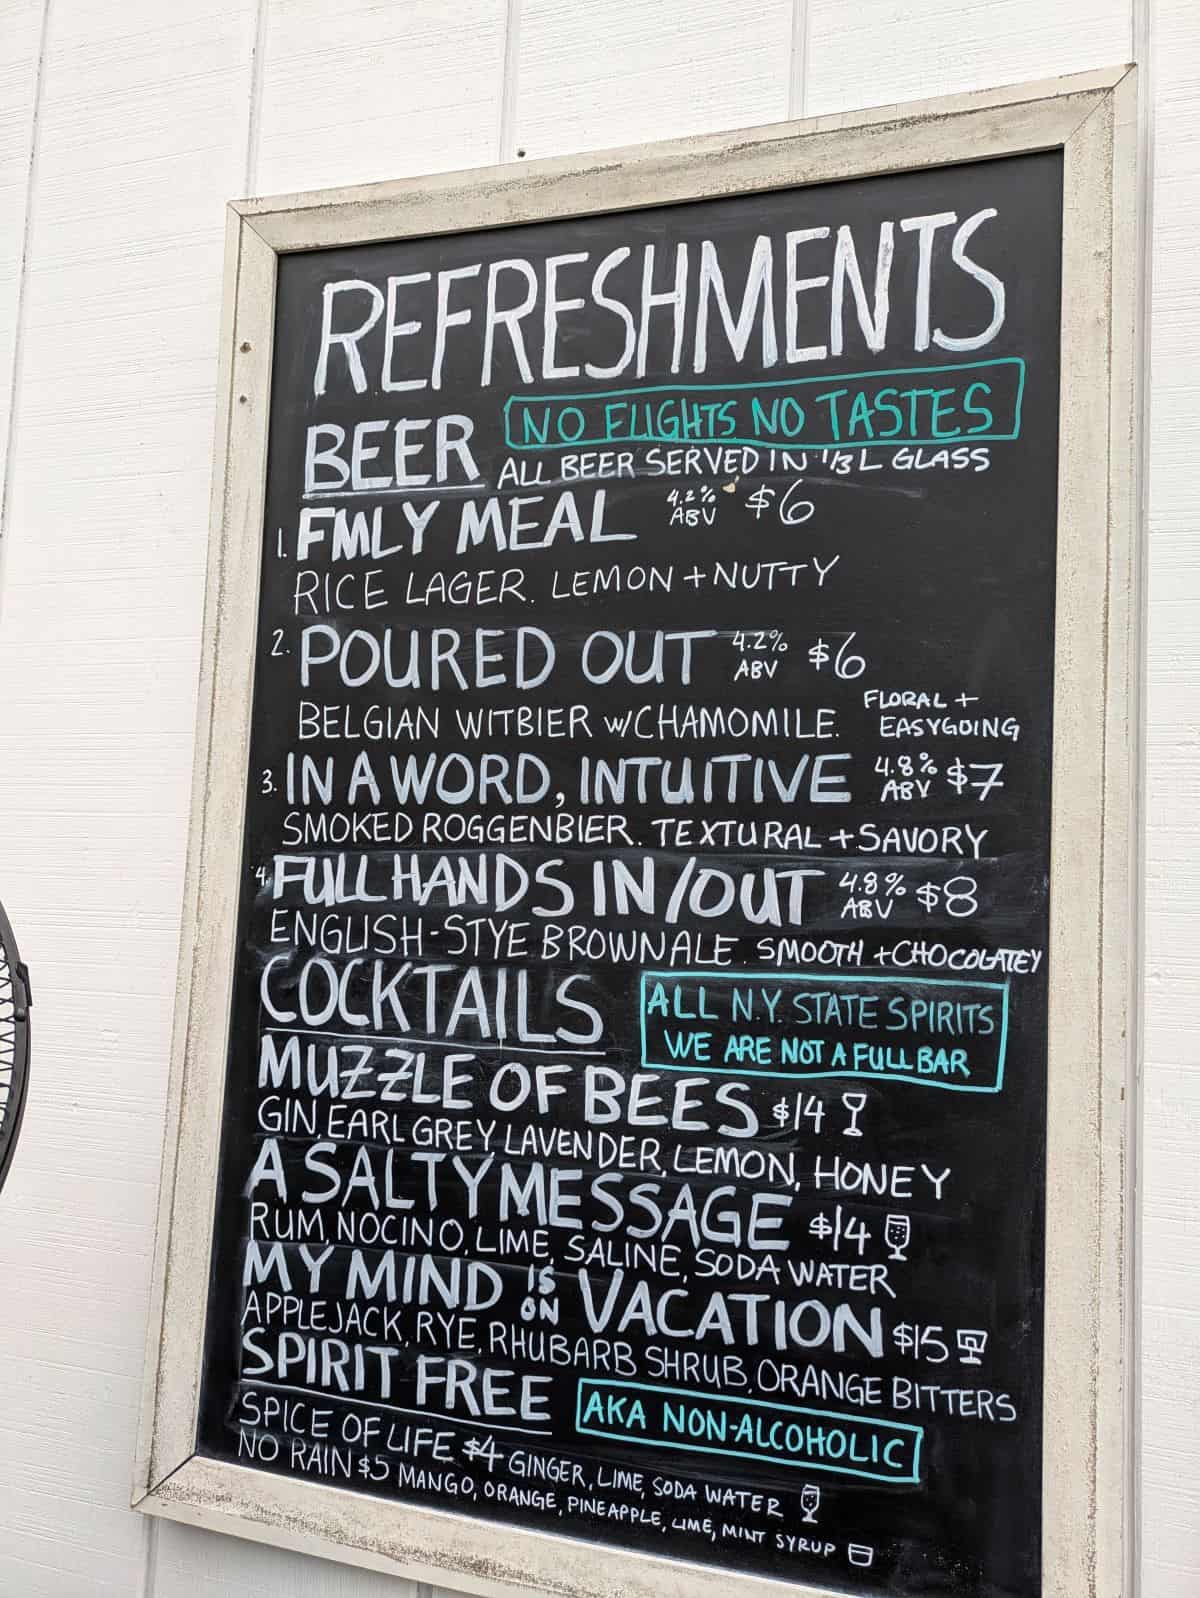 REFRESHMENTS
BEER NO FLIGHTS NO TASTES
ALL BEER SERVED IN 1/3 L GLASS
1. FMLY MEAL 4.2% ABV $6
RICE LAGER. LEMON + NUTTY
2. POURED OUT 4.2% ABV $6
BELGIAN WITBIER w/CHAMOMILE. FLORAL + EASYGOING
3. IN A WORD, INTUITIVE 4.8% ABV $7
SMOKED ROGGENBIER. TEXTURAL + SAVORY
4. FULL HANDS IN/OUT 4.8% ABV $8
ENGLISH-STYE BROWN ALE. SMOOTH + CHOCOLATEY
COCKTAILS ALL N.Y. STATE SPIRITS
WE ARE NOT A FULL BAR
MUZZLE OF BEES $14
GIN, EARL GREY, LAVENDER, LEMON, HONEY
A SALTY MESSAGE $14
RUM, NOCINO, LIME, SALINE, SODA WATER
MY MIND IS ON VACATION $15
APPLEJACK, RYE, RHUBARB SHRUB, ORANGE BITTERS
SPIRIT FREE AKA NON-ALCOHOLIC
SPICE OF LIFE $4 GINGER, LIME, SODA WATER
NO RAIN $5 MANGO, ORANGE, PINEAPPLE, LIME, MINT SYRUP